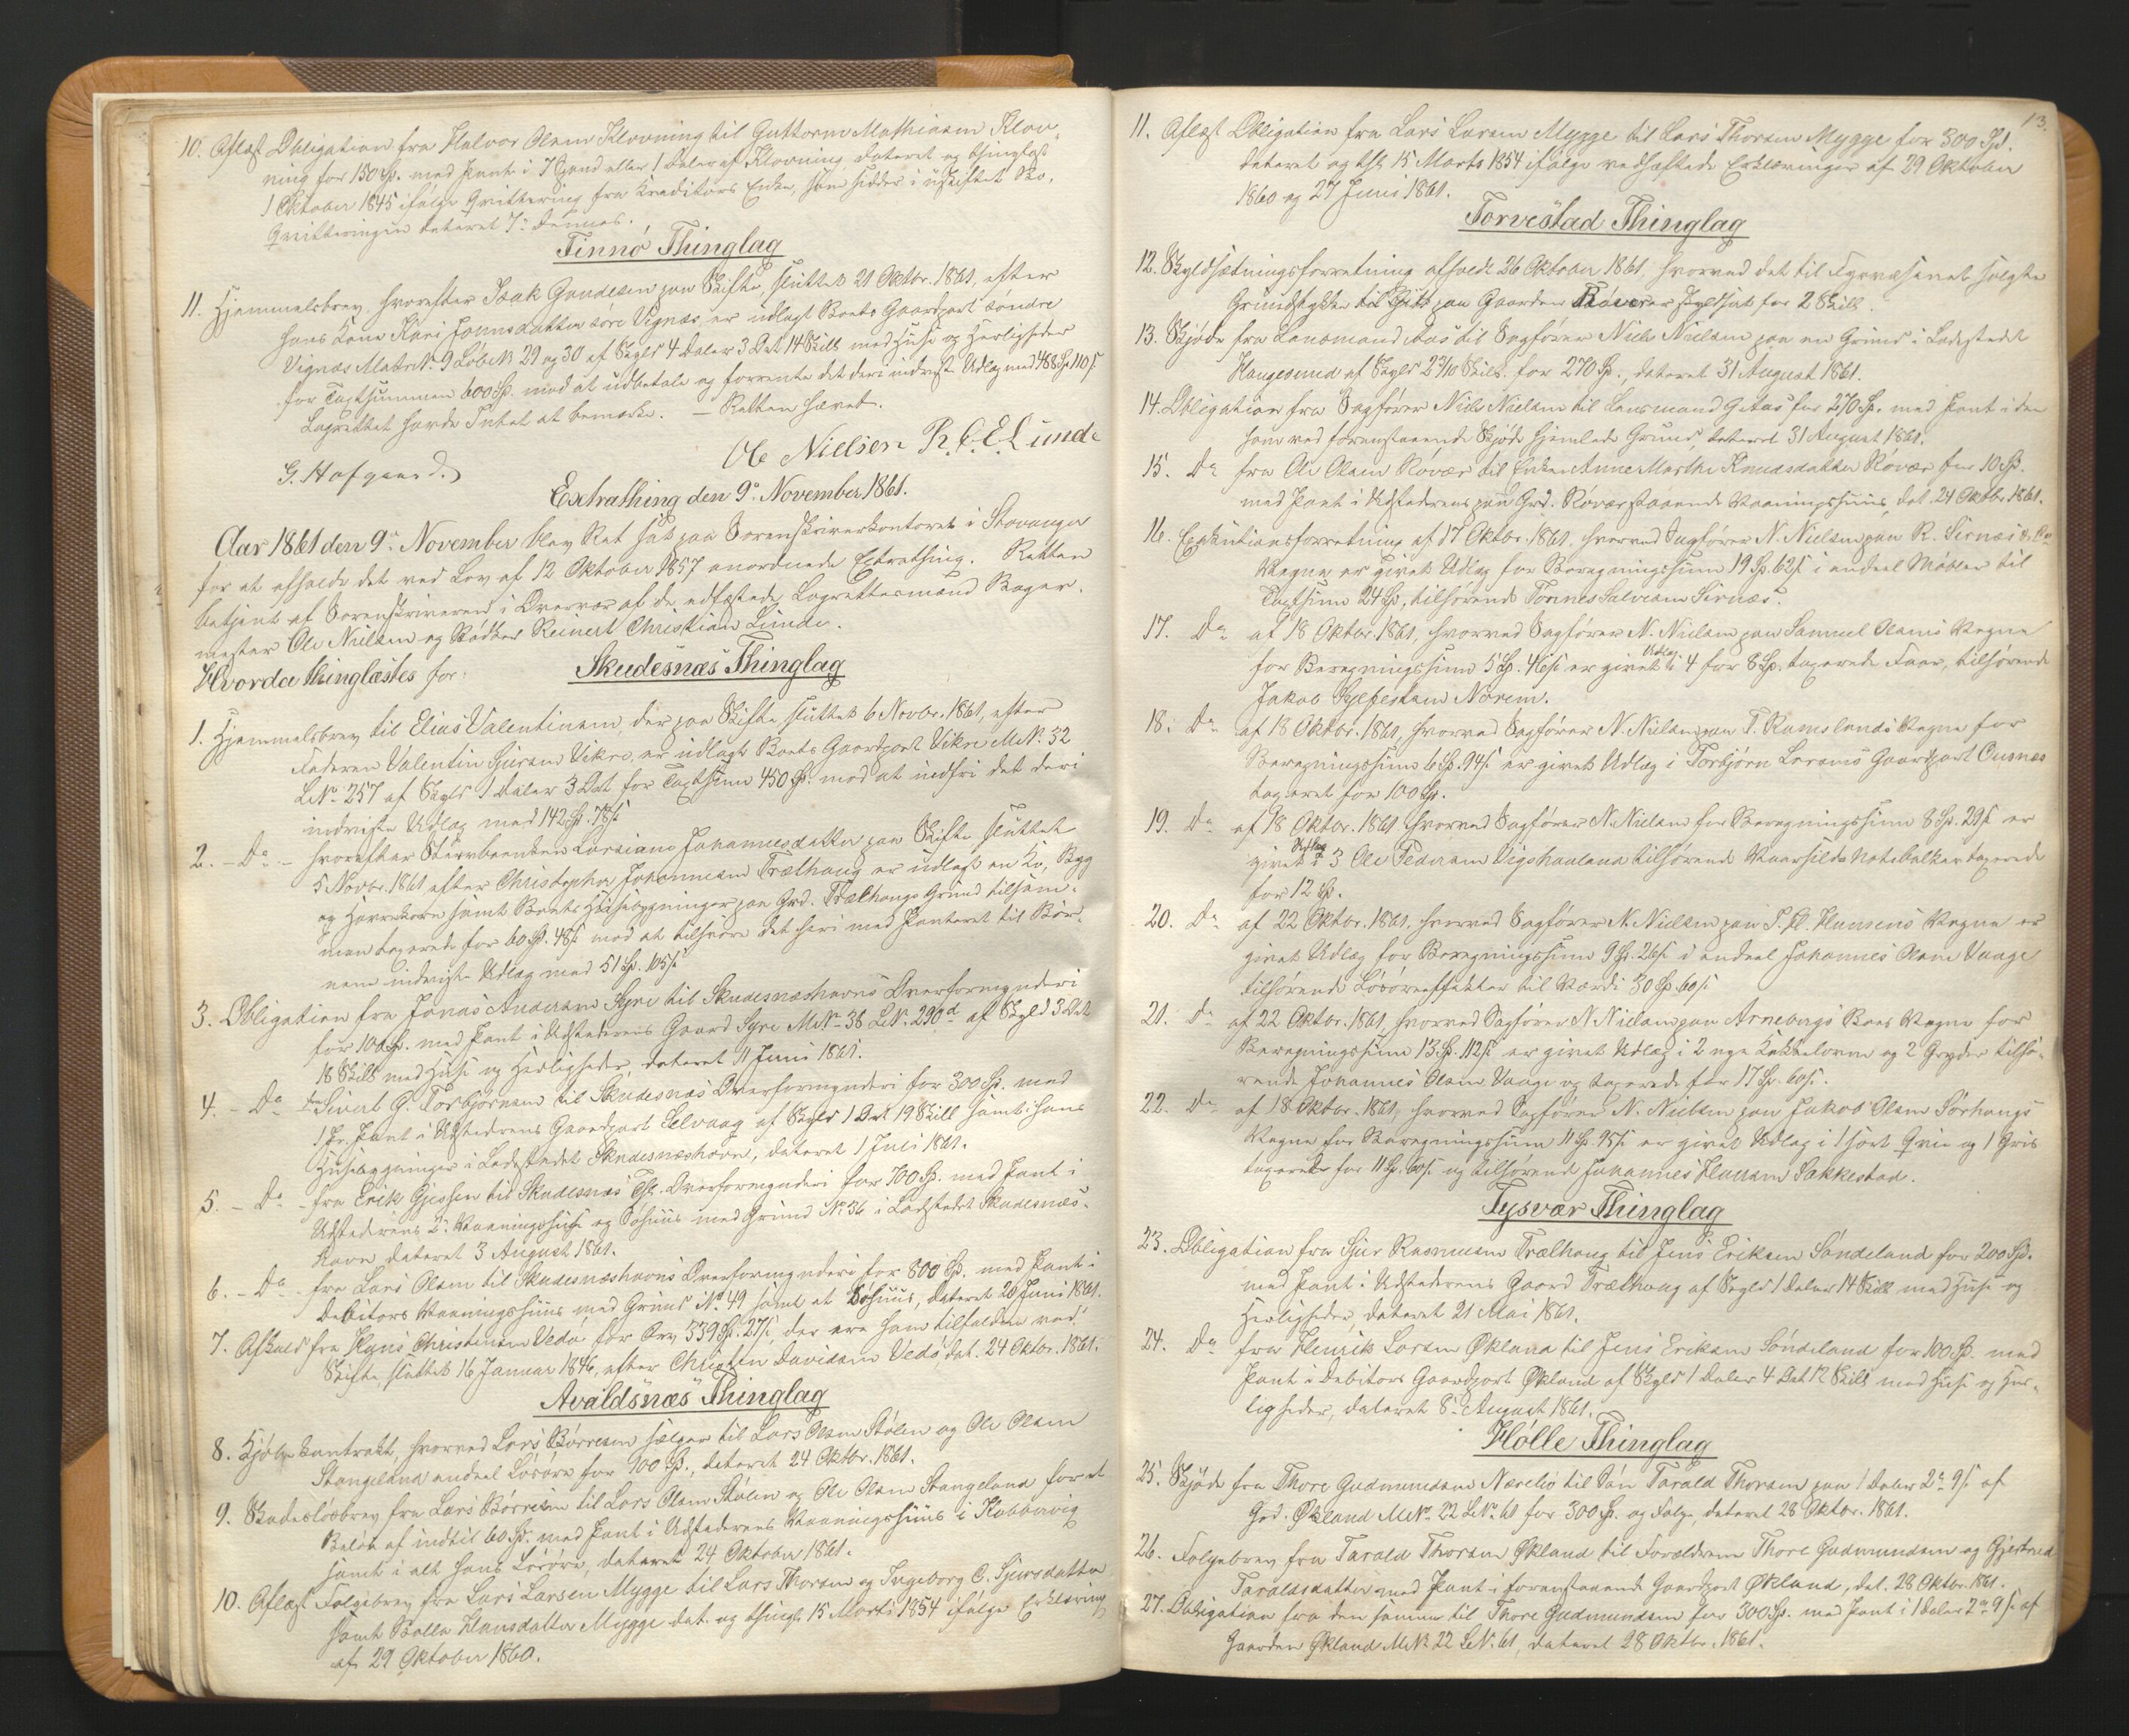 10. Aflæst Obligation fra Halvor Olsen Klovning til Guttorm Mathiasen Klov-
ning for 150 Sp. med Pant i 7 Spand eller 1 Daler af Klovning, dateret og thinglæst
1 Oktober 1845 ifølge Qvittering fra Kreditors Enke, som sidder i uskiftet Bo.
Qvitteringen dateret 7de Dennes.
Finnø Thinglag
11. Hjemmelsbrev, hvorefter Isak Gundesen paa Skifte, sluttet 21 Oktbr. 1861, efter
hans Kone Kari Jonnsdatter søre Vignæs, er udlagt Boets Gaardpart søndre
Vignæs Matr.N. 9 Løbe N. 29 og 30 af Skyld 4 Daler 3 Ort 14 Skill. med Huse og Herligheder
for Taxtsummen 600 Sp. mod at udbetale og forrente det deri indviste Udlæg med 488 Sp. 110 s.
Lagrettet havde Intet at bemærke. – Retten hævet.
G. Hofgaard. Ole Nielsen R. C. E. Lunde
Extrathing den 9de November 1861.
Aar 1861 den 9de November blev Ret sat paa Sorenskriverkontoret i Stavanger
for at afholde det ved Lov af 12 Oktober 1857 anordnede Extrathing. Retten
betjent af Sorenskriveren i Overvær af de edfæstede Lagrettesmænd Bager-
mester Ole Nielsen og Bødker Reinert Christian Lunde.
Hvorda thinglæstes for: Skudesnæs Thinglag
1. Hjemmelsbrev til Elias Valentinsen, der paa Skifte sluttet 6 Novbr. 1861, efter
Faderen Valentin Sjursen Vikre, er udlagt Boets Gaardpart Vikre M.N. 32
L.N. 257 af Skyld 1 Daler 3 Ort for Taxtsum 450 Sp. mod at indfri det deri
indviste Udlæg med 142 Sp. 78 s.
2. – Do – hvorefter Stervboenken Larsiane Johannesdatter paa Skifte sluttet
5 Novbr. 1861 efter Christopher Johannesen Trælhaug er udlagt en Ko, Byg
og Havrekorn samt Boets Husebygninger paa Grd. Trælhaugs Grund tilsam-
men taxerede for 60 Sp. 48 s. mod at tilsvare det heri med Panteret til Bør-
nene indviste Udlæg med 51 Sp. 105 s.
3. Obligation fra Jonas Andersen Syre til Skudesnæshavns Overformynderi
for 100 Sp. med Pant i Udstederens Gaard Syre M.N. 38 L.N. 290d af Skyld 3 Ort
18 Skill. med Huse og Herligheder, dateret 11 Juni 1861.
4. – Do fra Sivert G. Torbjørnsen til Skudesnæs Overformynderi for 300 Sp. med
1 Pr. Pant i Udstederens Gaardpart Selvaag af Skyld 1 Ort 19 Skill. samt i hans
Husebygninger i Ladestedet Skudesnæshavn, dateret 1 Juli 1861.
5. – Do – fra Erik Gjessen til Skudesnæs Thl. Overformynderi for 700 Sp. med Pant i
Udstederens 2de Vaaningshuse og Søhuus med Grund No 36 i Ladestedet Skudesnæs-
havn dateret 3 August 1861.
6. – Do – fra Lars Olsen til Skudesnæshavns Overformynderi for 800 Sp. med Pant i
Debitors Vaaningshuus med Grund No 49 samt et Søhuus, dateret 20 Juni 1861.
7. Afkald fra Hans Christensen Vedø for Arv 339 Sp. 27 s., der ere ham tilfaldne ved
Skifte sluttet 16 Januar 1846, efter Christen Davidsen Vedø dat. 24 Oktbr. 1861.
Avaldsnæs Thinglag
8. Kjøbekontrakt, hvorved Lars Børresen sælger til Lars Olsen Stølen og Ole Olsen
Stangeland endeel Løsøre for 100 Sp., dateret 24 Oktbr. 1861.
9. Skadesløsbrev fra Lars Børresen til Lars Olsen Stølen og Ole Olsen Stangeland for et
Beløb af indtil 60 Sp. med Pant i Udstederens Vaaningshuus i Kobbervig
samt i alt hans Løsøre, dateret 24 Oktober 1861.
10. Aflæst Folgebrev fra Lars Larsen Mygge til Lars Thorsen og Ingeborg C. Sjursdatter
samt Bolla Hansdatter Mygge dat. og thingl. 15 Marts 1854 ifølge Erklæring
af 29 Oktober 1860.
13.
11. Aflæst Obligation fra Lars Larsen Mygge til Lars Thorsen Mygge for 300 Spd.
dateret og thl. 15 Marts 1854 ifølge vedheftede Erklæringer af 29 Oktober
1860 og 27 Juni 1861.
Torvestad Thinglag
12. Skyldsætningsforretning afholdt 26 Oktober 1861, hvorved det til Fyrvæsenet solgte
Grundstykke til paa Gaarden Røvær er skyldsat for 2 Skill.
13. Skjøde fra Lensmand Aas til Sagfører Niels Nielsen paa en Grund i Ladestedet
Haugesund af Skyld 2 3/10 Skill. for 270 Sp., dateret 31 August 1861.
14. Obligation fra Sagfører Niels Nielsen til Lensmand G. Aas for 270 Sp. med Pant i den
ham ved foranstaaende Skjøde hjemlede Grund, dateret 31 August 1861.
15. Do fra Ole Olsen Røvær til Enken Anne Marthe Knudsdatter Røvær for 10 Sp.
med Pant i Udstederens paa Grd. Røvær staaende Vaaningshuus, dat. 24 Oktbr. 1861.
16. Exekutionsforretning af 17 Oktbr. 1861, hvorved Sagfører N. Nielsen paa R. Sirnæs & Co
Vegne er givet Udlæg for Beregningssum 19 Sp. 62 s. i endeel Møbler til
Taxtsum 24 Sp., tilhørende Tønnes Salvesen Sirnæs.
17. Do af 18 Oktbr. 1861, hvorved Sagfører N. Nielsen paa Samuel Olsens Vegne
for Beregningssum 5 Sp. 46 s. er givet Udlæg i 4 for 8 Sp. taxerede Faar, tilhørende
Jakob Sylfestsen Norem.
18. Do af 18 Oktbr. 1861, hvorved Sagfører N. Nielsen paa T. Ramslands Vegne for
Beregningssum 6 Sp. 94 s. er givet Udlæg i Torbjørn Larsens Gaardpart Ousnes
taxeret for 100 Sp.
19. Do af 18 Oktbr. 1861 hvorved Sagfører N. Nielsen for Beregningssum 8 Sp. 29 s. er
givet Udlæg i 3 Ole Pedersen Vigshauland tilhørende Vaarsilde Notebalker taxerede
for 12 Sp.
20. Do af 22 Oktbr. 1861, hvorved Sagfører N. Nielsen paa Hansens Vegne er
givet Udlæg for Beregningssum 9 Sp. 26 s. i endeel Johannes Olsen Vaage
tilhørende Løsøreeffekter til Værdi 30 Sp. 60 s.
21. Do af 22 Oktbr. 1861, hvorved Sagfører N. Nielsen paa Arnebergs Boes Vegne for
Beregningssum 13 Sp. 112 s. er givet Udlæg i 2 nye Kakkelovne og 2 Gryder tilhø-
rende Johannes Olsen Vaage og taxerede for 17 Sp. 60 s.
22. Do af 18 Oktbr. 1861, hvorved Sagfører N. Nielsen paa Jakob Olsen Sørhaugs
Vegne for Beregningssum 11 Sp. 95 s. er givet Udlæg i 1 sort Qvie og 1 Gris
taxerede for 11 Sp. 60 s. og tilhørende Johannes Sakkestad.
Tysvær Thinglag
23. Obligation fra Sjur Rasmusen Trælhaug til Jens Eriksen Søndeland for 200 Spd.
med Pant i Udstederens Gaard Trælhaug af Skyld 1 Daler 14 Skill. med Huse og
Herligheder, dateret 21 Mai 1861.
24. Do fra Henrik Larsen Økland til Jens Eriksen Søndeland for 100 Sp. med
Pant i Debitors Gaardpart Økland af Skyld 1 Daler 4 Ort 12 Skill. med Huse og Her-
ligheder, dateret 8de August 1861.
Hølle Thinglag
25. Skjøde fra Thore Gudmundsen Nærebø til Søn Tarald Thorsen paa 1 Daler 2 o. 9 s. af
Grd. Økland M.No. 22 L.No. 61 for 300 Sp. og Folge, dateret 28 Oktbr. 1861.
26. Folgebrev fra Tarald Thorsen Økland til Forældrene Thore Gudmundsen og Gjertrud
Taraldsdatter med Pant i foranstaaende Gaardpart Økland, dat. 28 Oktbr. 1861.
27. Obligation fra den samme til Thore Gudmundsen for 300 Sp. med Pant i 1 Daler 2 o. 9 s. af
Gaarden Økland M.N. 22 L.N. 61, dateret 28 Oktbr. 1861.